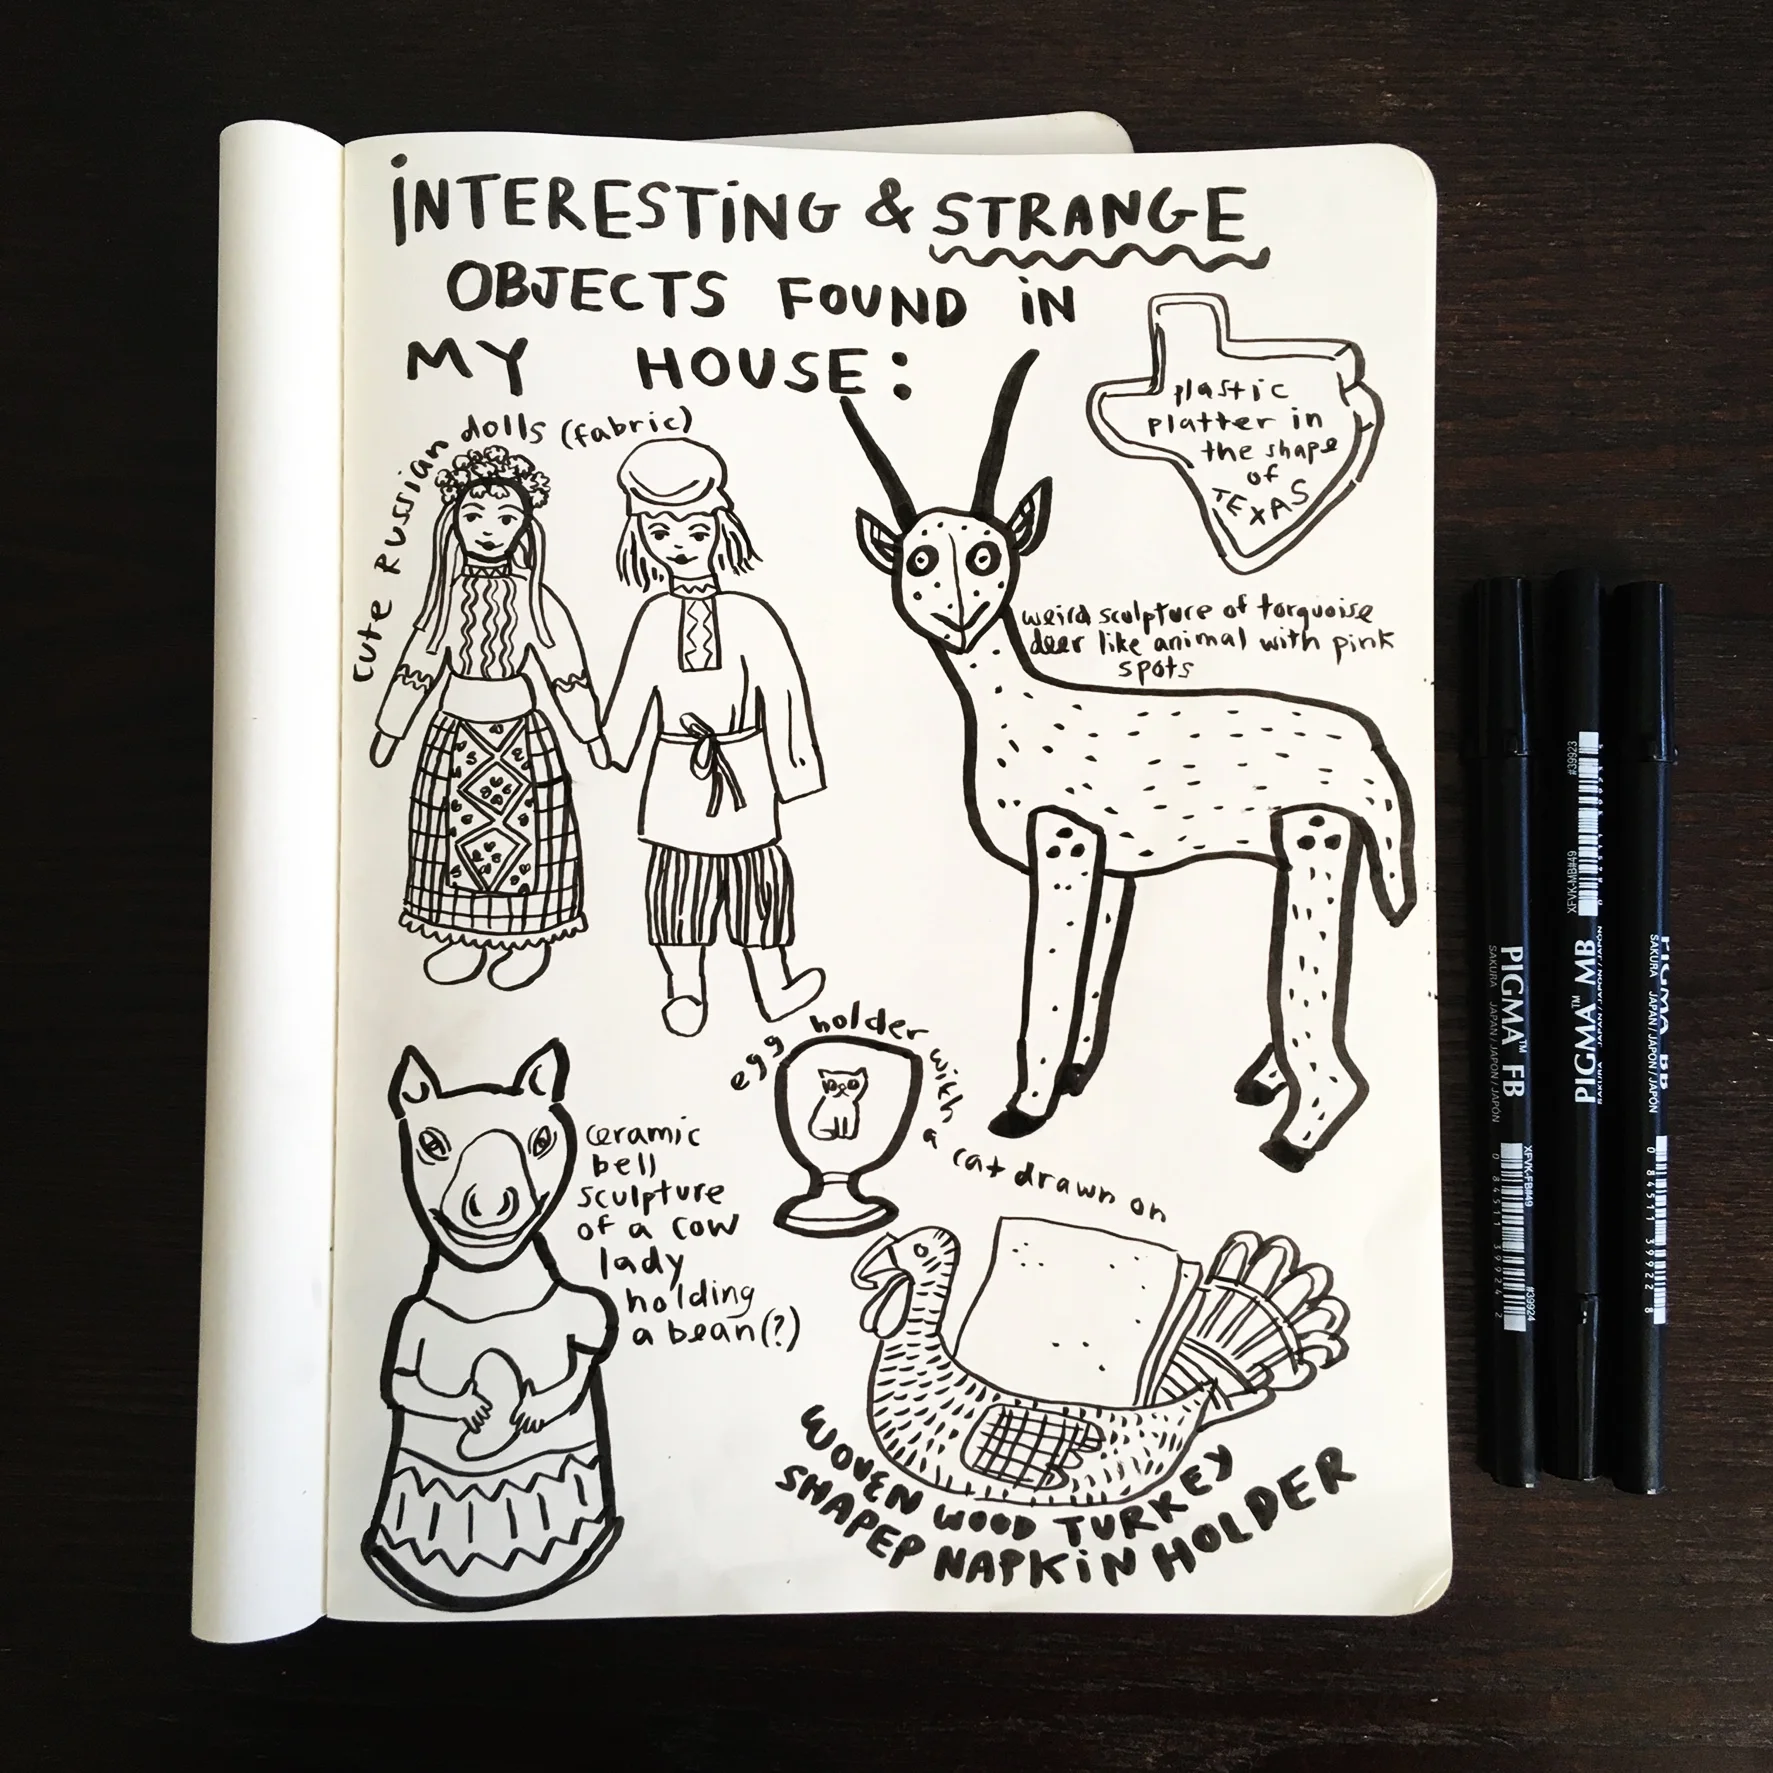 iNTERESTiNG & STRANGE
OBJECTS FOUND iN
MY HOUSE:
cute Russian dolls (fabric)
plastic
platter in
the shape
of
TEXAS
weird sculpture of torquoise
deer like animal with pink
spots
egg holder with a cat drawn on
ceramic
bell
sculpture
of a cow
lady
holding
a bean(?)
WOVEN WOOD TURKEY
SHAPEP NAPKiN HOLDER
PIGMA™ FB
SAKURA JAPAN / JAPON / JAPÓN
XFVK-FB#49
#39924
0 84511 39924 2
PIGMA™ MB
SAKURA JAPAN / JAPON / JAPÓN
XFVK-MB#49
#39923
PIGMA BB
SAKURA JAPAN / JAPON / JAPÓN
0 84511 39922 8